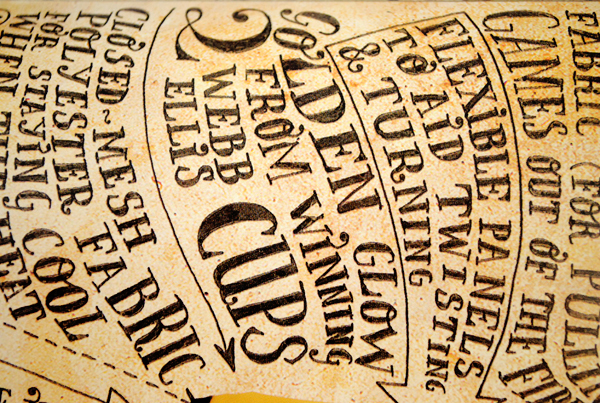 FABRIC (FOR PULLIN
GAMES OUT OF THE
FLEXIBLE PANELS
TO AID TWISTING
& TURNING
GOLDEN GLOW
FROM WINNING
2 WEBB
ELLIS CUPS
CLOSED~MESH
POLYESTER FABRIC
FOR STAYING COOL
WHEN THE HEAT